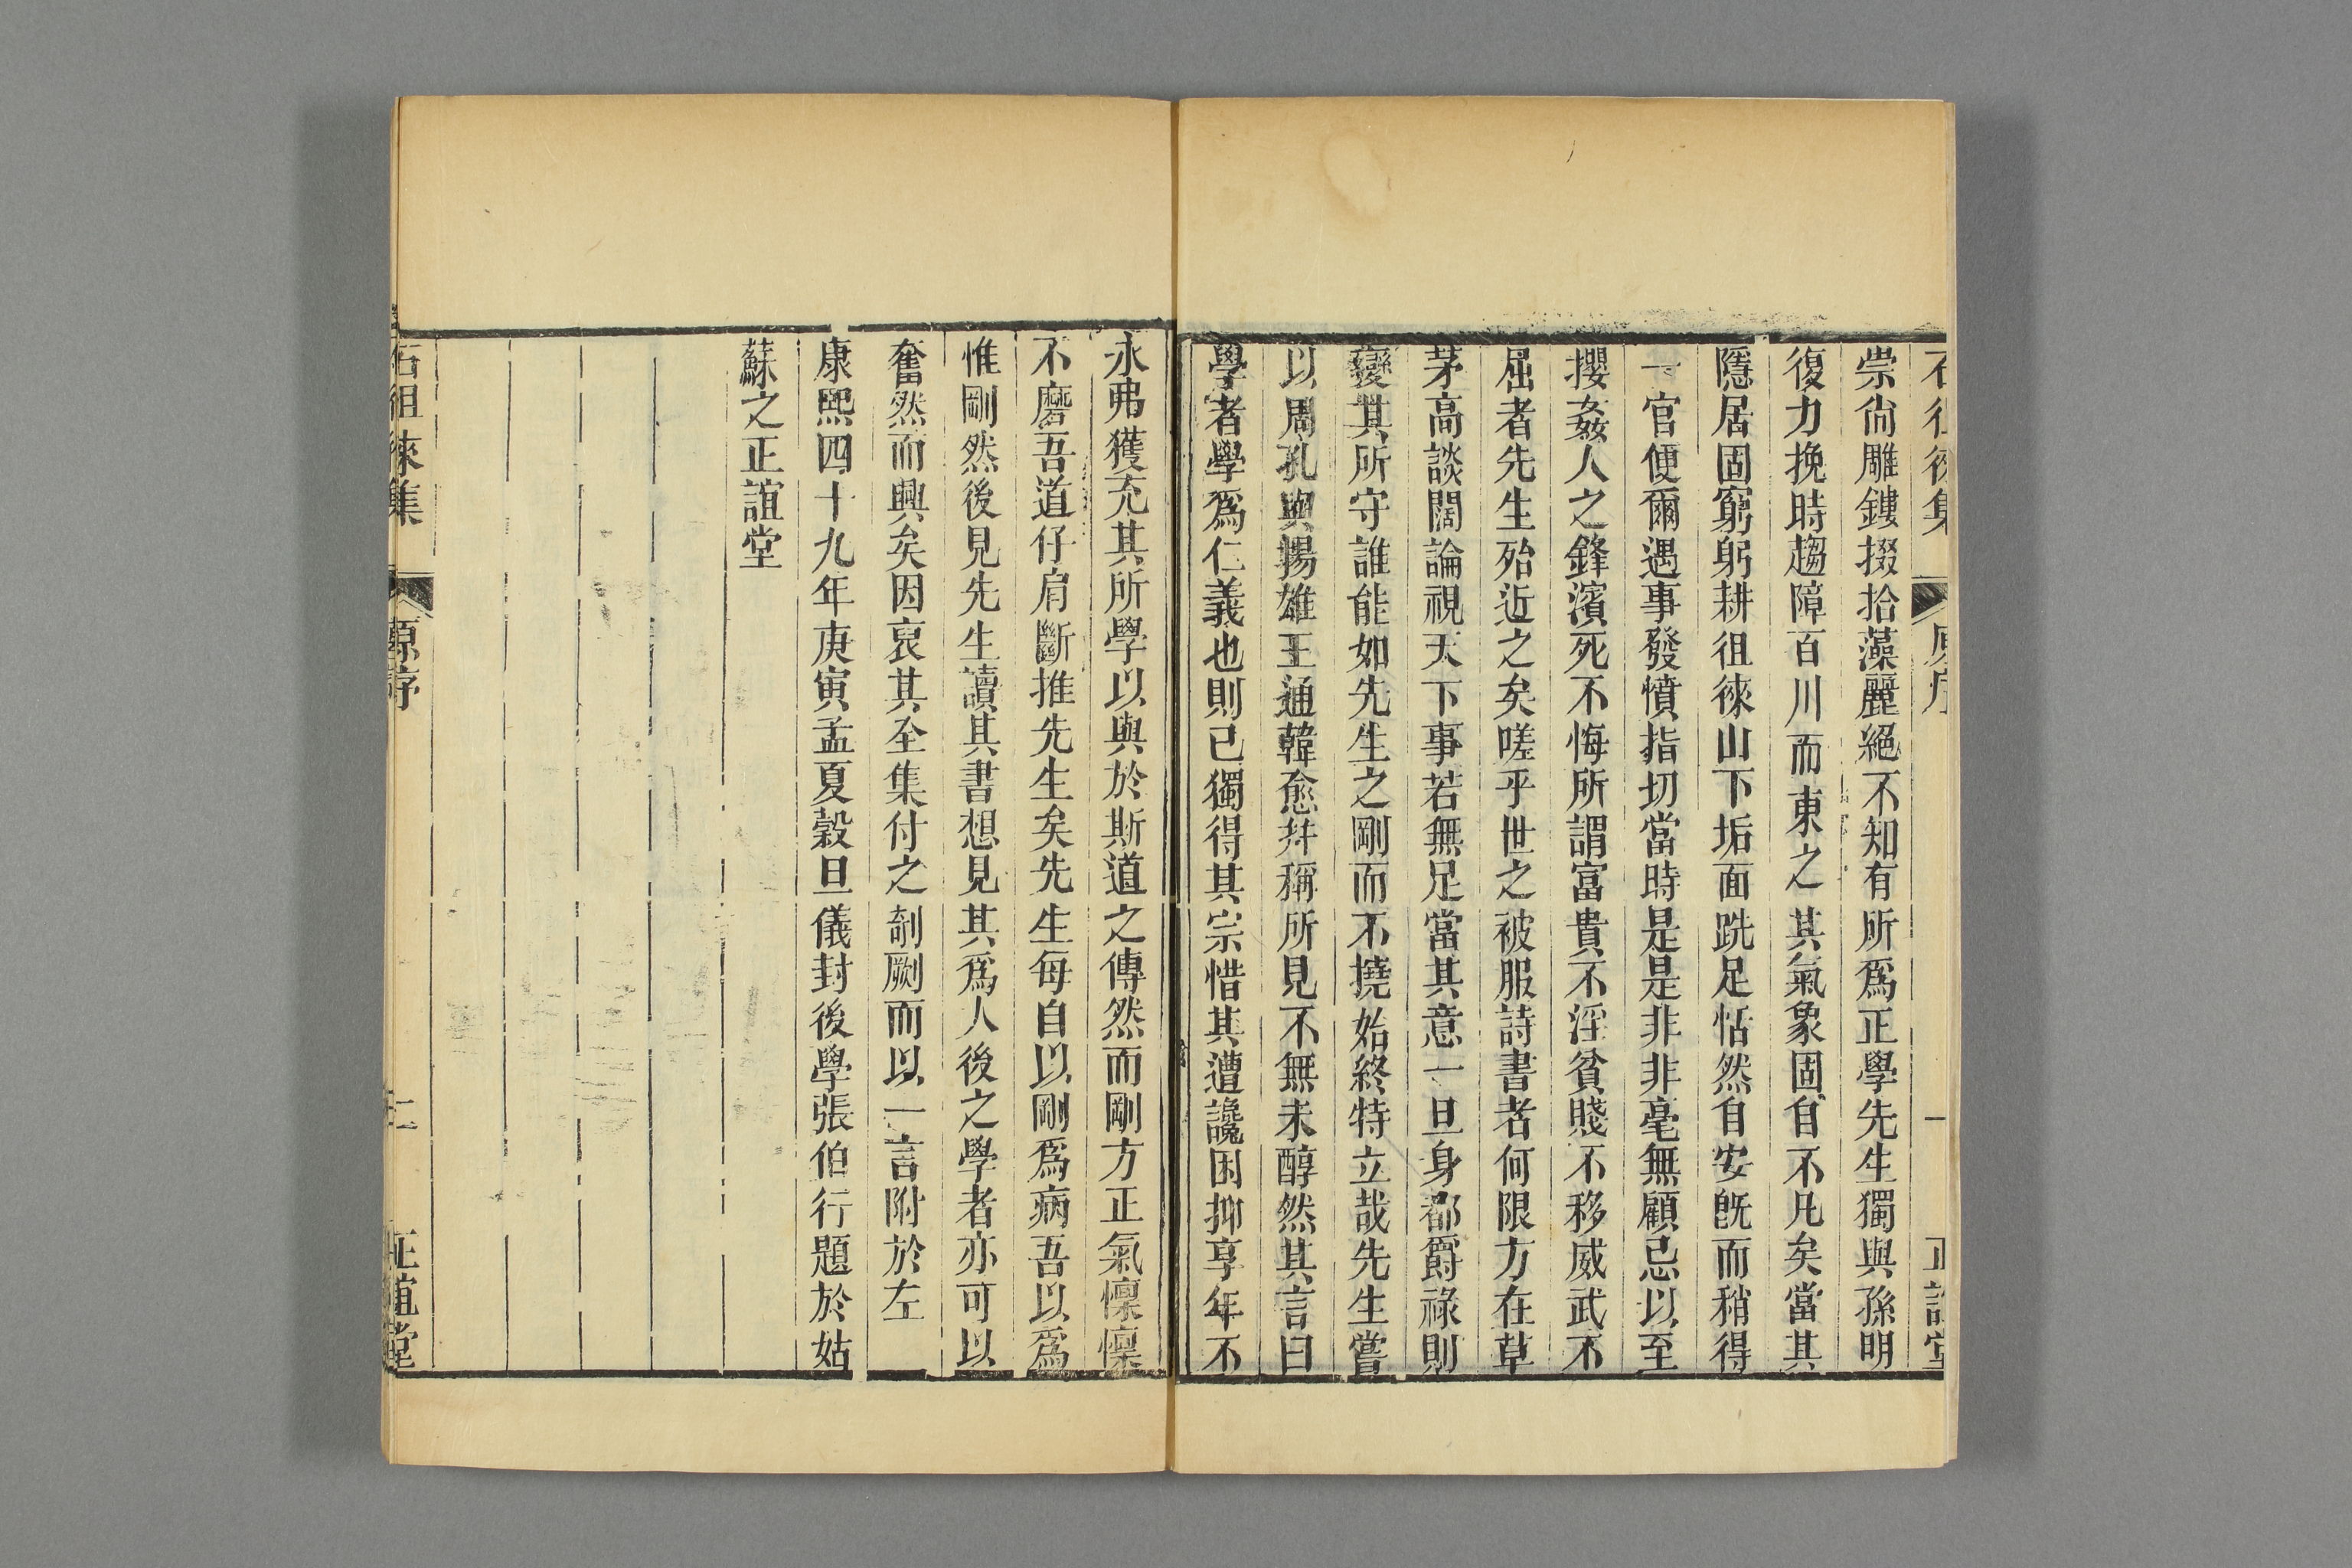 石徂徠集 原序 一 正誼堂
崇尙雕鏤掇拾藻麗絕不知有所爲正學先生獨與孫明
復力挽時趨障百川而東之其氣象固自不凡矣當其
隱居固窮躬耕徂徠山下垢面跣足恬然自安旣而稍得
一官便爾遇事發憤指切當時是是非非毫無顧忌以至
攖姦人之鋒濱死不悔所謂富貴不淫貧賤不移威武不
屈者先生殆近之矣嗟乎世之被服詩書者何限方在草
茅高談闊論視天下事若無足當其意一旦身都爵祿則
變其所守誰能如先生之剛而不撓始終特立哉先生嘗
以周孔與揚雄王通韓愈幷稱所見不無未醇然其言曰
學者學爲仁義也則已獨得其宗惜其遭讒困抑享年不
永弗獲充其所學以與於斯道之傳然而剛方正氣懍懍
不磨吾道仔肩斷推先生矣先生每自以剛爲病吾以爲
惟剛然後見先生讀其書想見其爲人後之學者亦可以
奮然而興矣因裒其全集付之剞劂而以一言附於左
康熙四十九年庚寅孟夏榖旦儀封後學張伯行題於姑
蘇之正誼堂
石徂徠集 原序 二 正誼堂